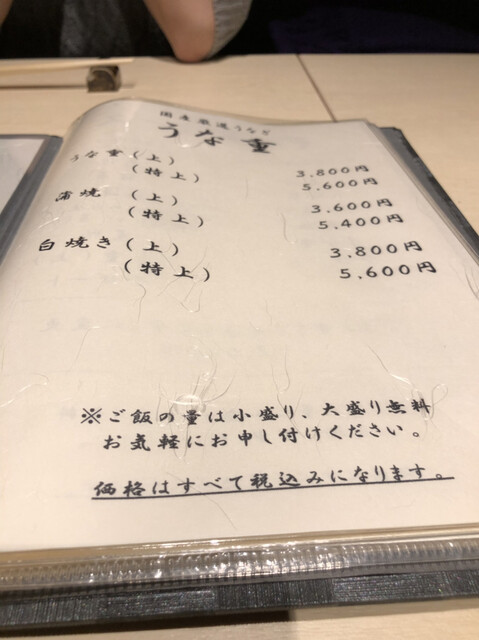 国産厳選うなぎ
うな重
うな重(上) 3.800円
(特上) 5.600円
蒲焼(上) 3.600円
(特上) 5.400円
白焼き(上) 3.800円
(特上) 5.600円
※ご飯の量は小盛り、大盛り無料
お気軽にお申し付けください。
価格はすべて税込みになります。